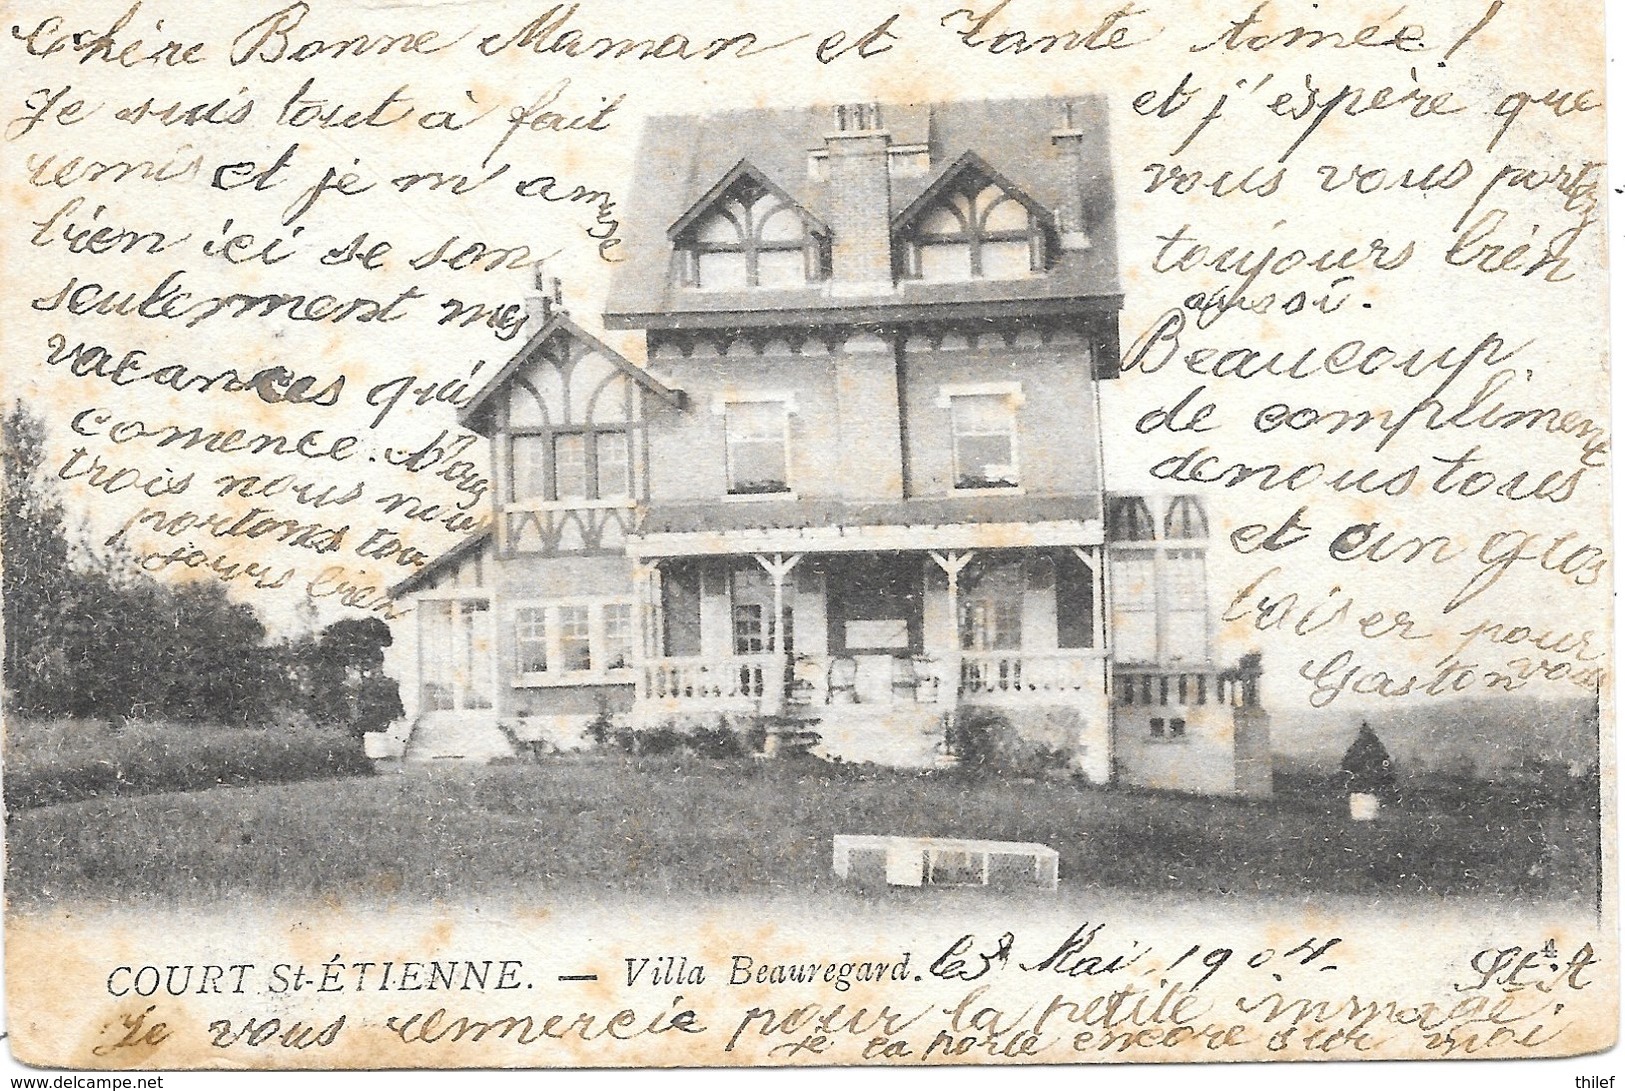 Chère Bonne Maman et Tante Aimée !
Je suis tout à fait
remis et je m'amuse
bien ici se son
seulement mes
vacances qui
comence. Nous
trois nous nous
portons tou
jours bien
et j'éspère que
vous vous portez
toujours bien
aussi.
Beaucoup
de compliment
de nous tous
et un gros
baiser pour
vous
Gaston
COURT St-ÉTIENNE. — Villa Beauregard.
Mai 1904
St. A
Je vous remercie pour la petite immage.
je la porte encore sur moi
delcampe.net
thilef